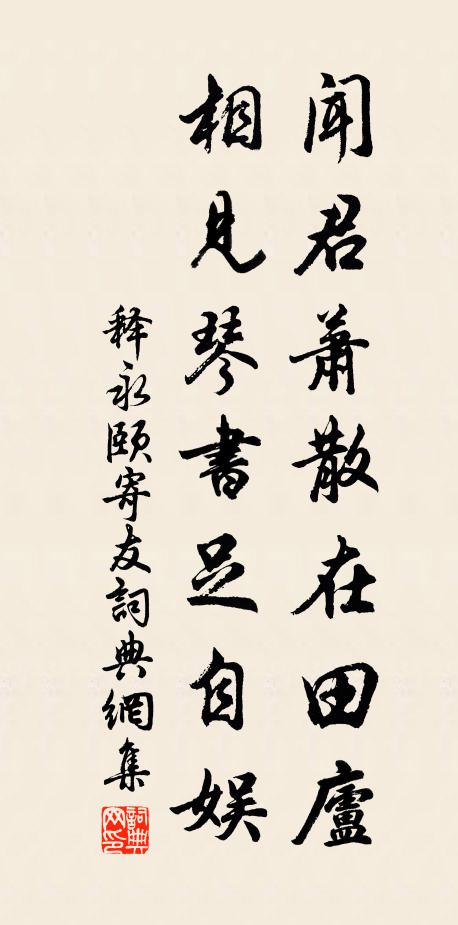 闻君蕭散在田廬
相見琴書足自娱
释永颐寄友詞典網集
詞典网印